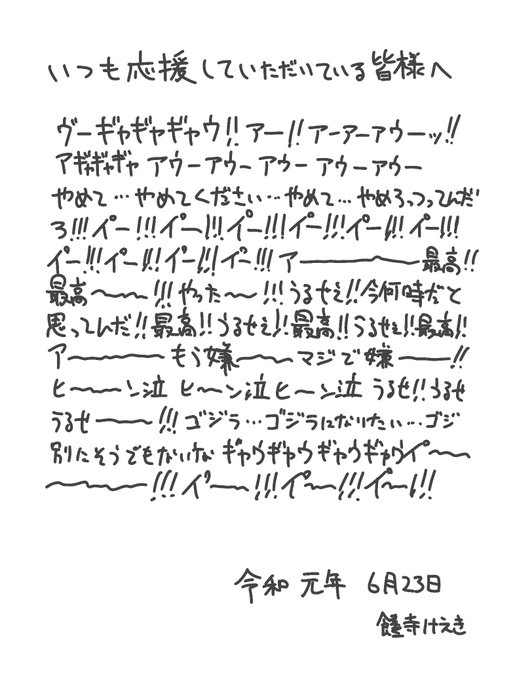 いつも応援していただいている皆様へ
ヴーギャギャギャウ!! アー!! アーアーアウーッ!!
アギャギャギャ アウーアウー アウー アウーアウー
やめて…やめてください…やめて…やめろっつってんだ
ろ!!!イ゚ー!!!イ゚ー!!!イ゚ー!!!イ゚ー!!!イ゚ー!!!イ゚ー!!!
イ゚ー!!!イ゚ー!!!イ゚ー!!!イ゚ー!!! アー最高!!
最高〜!!!やった〜!!!うるせえ!!今何時だと
思ってんだ!!最高!!うるせえ!!最高!!うるせえ!!最高!!
アーもう嫌〜マジで嫌ー!!
ヒ〜ン泣 ヒ〜ン泣ヒ〜ン泣 うるせ!!うるせ
うるせー!!!ゴジラ…ゴジラになりたい…ゴジ
別にそうでもないな ギャウギャウギャウギャウイ゚〜
〜!!!イ゚〜!!!イ゚〜!!!イ゚〜!!!
令和 元年 6月23日
饐寺けえき